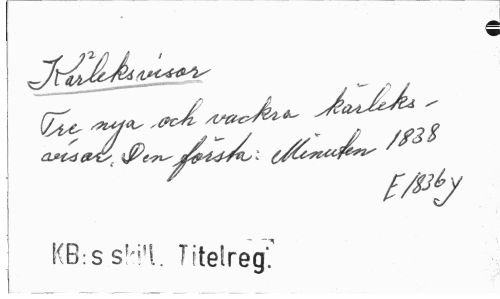 Kärleksvisor
Tre nya och vackra kärleks-
visor. Den första: Minuten 1838
E 1836 y
KB:s skill. Titelreg.